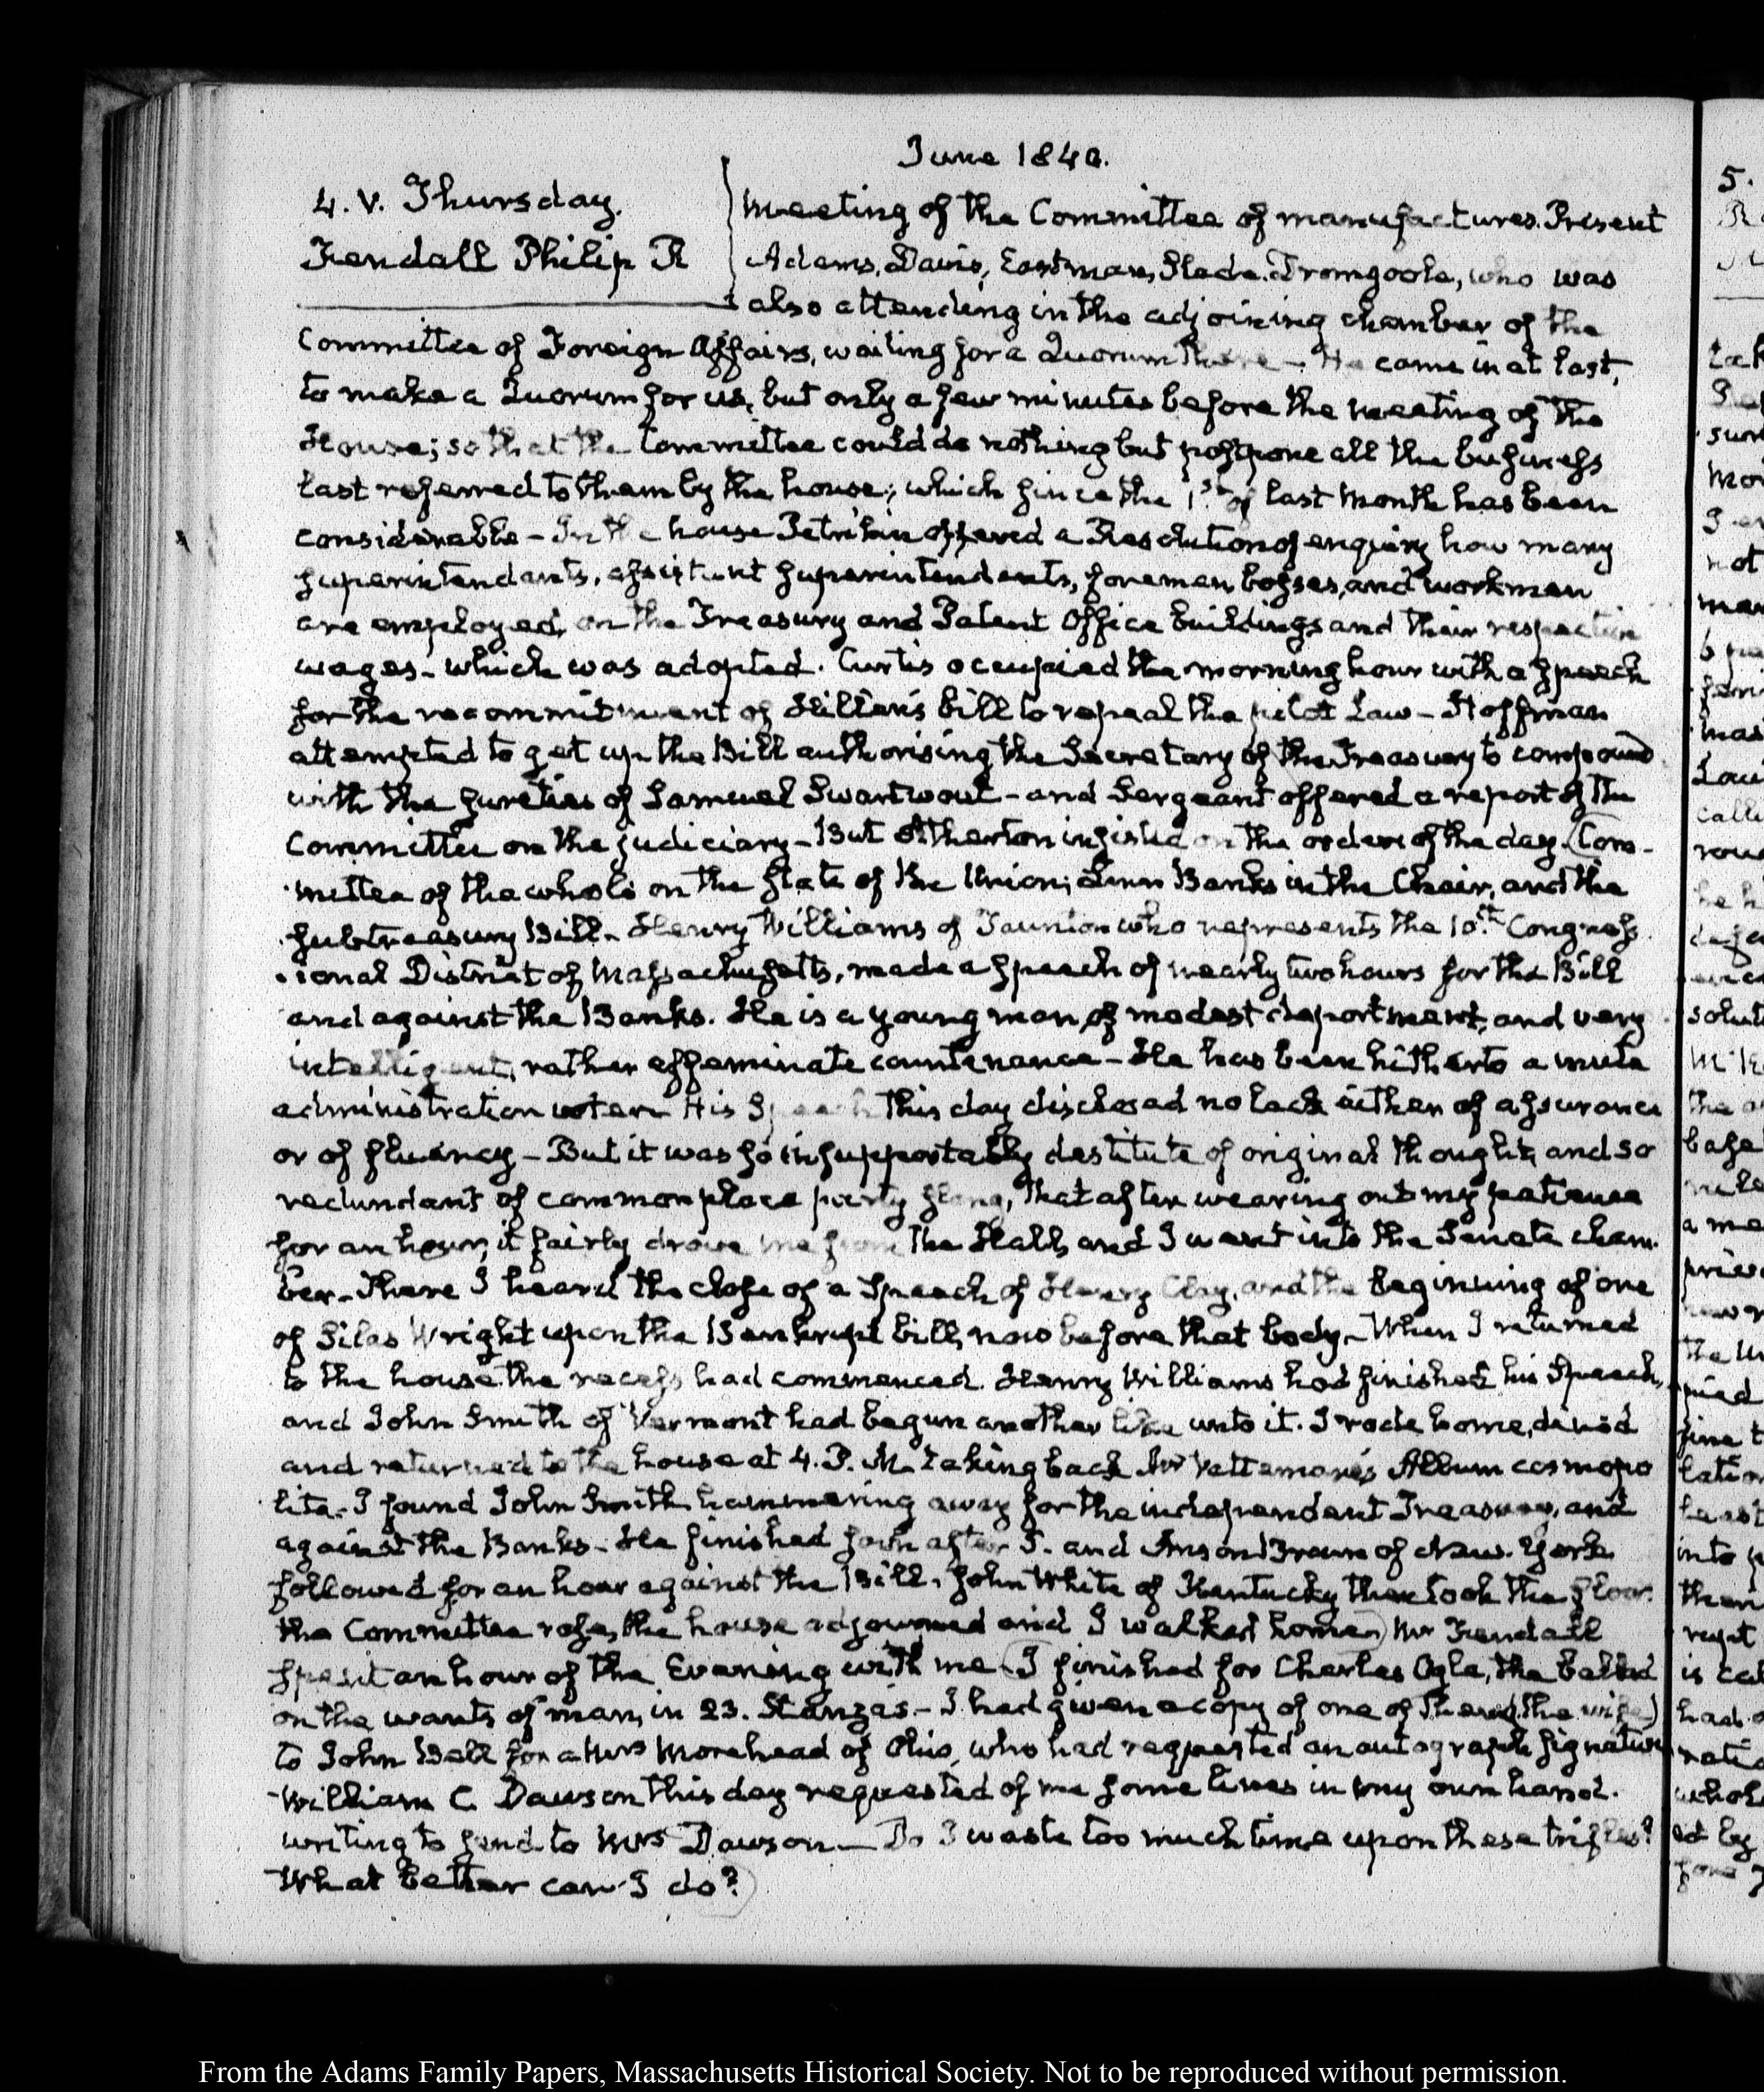 June 1840.
4. V. Thursday.
Fendall Philip R
Meeting of the Committee of manufactures. Present
Adams, Davis, Eastman, Slade. Dromgoole, who was
also attending in the adjoining chamber of the
Committee of Foreign Affairs, waiting for a Quorum there – He came in at last,
to make a Quorum for us, but only a few minutes before the meeting of the
House; so that the Committee could do nothing but postpone all the business
last referred to them by the house; which since the 1st of last month has been
considerable – In the house Petrikin offered a Resolution of enquiry how many
superintendants, assistant superintendents, foreman, bosses, and workmen
are employed, on the Treasury and Patent Office buildings and their respective
wages – which was adopted. Curtis occupied the morning hour with a speech
for the recommitment of Hillen's bill to repeal the pilot Law – Hoffman
attempted to get up the Bill authorising the Secretary of the Treasury to compound
with the sureties of Samuel Swartwout – and Sergeant offered a report of the
Committee on the judiciary – But Atherton insisted on the orders of the day. (Com-
mittee of the whole on the state of the Union; Linn Banks in the Chair, and the
subtreasury Bill – Henry Williams of Taunton who represents the 10th Congress-
ional District of Massachusetts, made a speech of nearly two hours for the Bill
and against the Banks. He is a young man of modest deportment, and very
intelligent, rather effeminate countenance – He has been hitherto a mute
administration voter. His speech this day disclosed no lack either of assurance
or of fluency – But it was so insupportably destitute of original thought, and so
redundant of common place party slang, that after wearing out my patience
for an hour, it fairly drove me from the Hall, and I went into the Senate cham-
ber – There I heard the close of a Speech of Henry Clay, and the beginning of one
of Silas Wright upon the Bankrupt bill, now before that body – When I returned
to the house the recess had commenced. Henry Williams had finished his Speech,
and John Smith of Vermont had begun another like unto it. I rode home, dined
and returned to the house at 4. P. M. taking back Mr Vattemare's Album cosmopo
lite – I found John Smith hammering away for the independent Treasury, and
against the Banks – He finished soon after 5. and Anson Brown of New-York
followed for an hour against the Bill. John White of Kentucky then took the floor.
the Committee rose, the house adjourned and I walked home) Mr Fendall
spent an hour of the Evening with me (I finished for Charles Ogle, the ballad
on the wants of man, in 23. Stanzas – I had given a copy of one of them (the wife)
to John Bell for a Mrs Morehead of Ohio, who had requested an autograph signature
William C. Dawson this day requested of me some lines in my own hand-
writing to send to Mrs Dawson – Do I waste too much time upon these trifles?
What better can I do?)
From the Adams Family Papers, Massachusetts Historical Society. Not to be reproduced without permission.